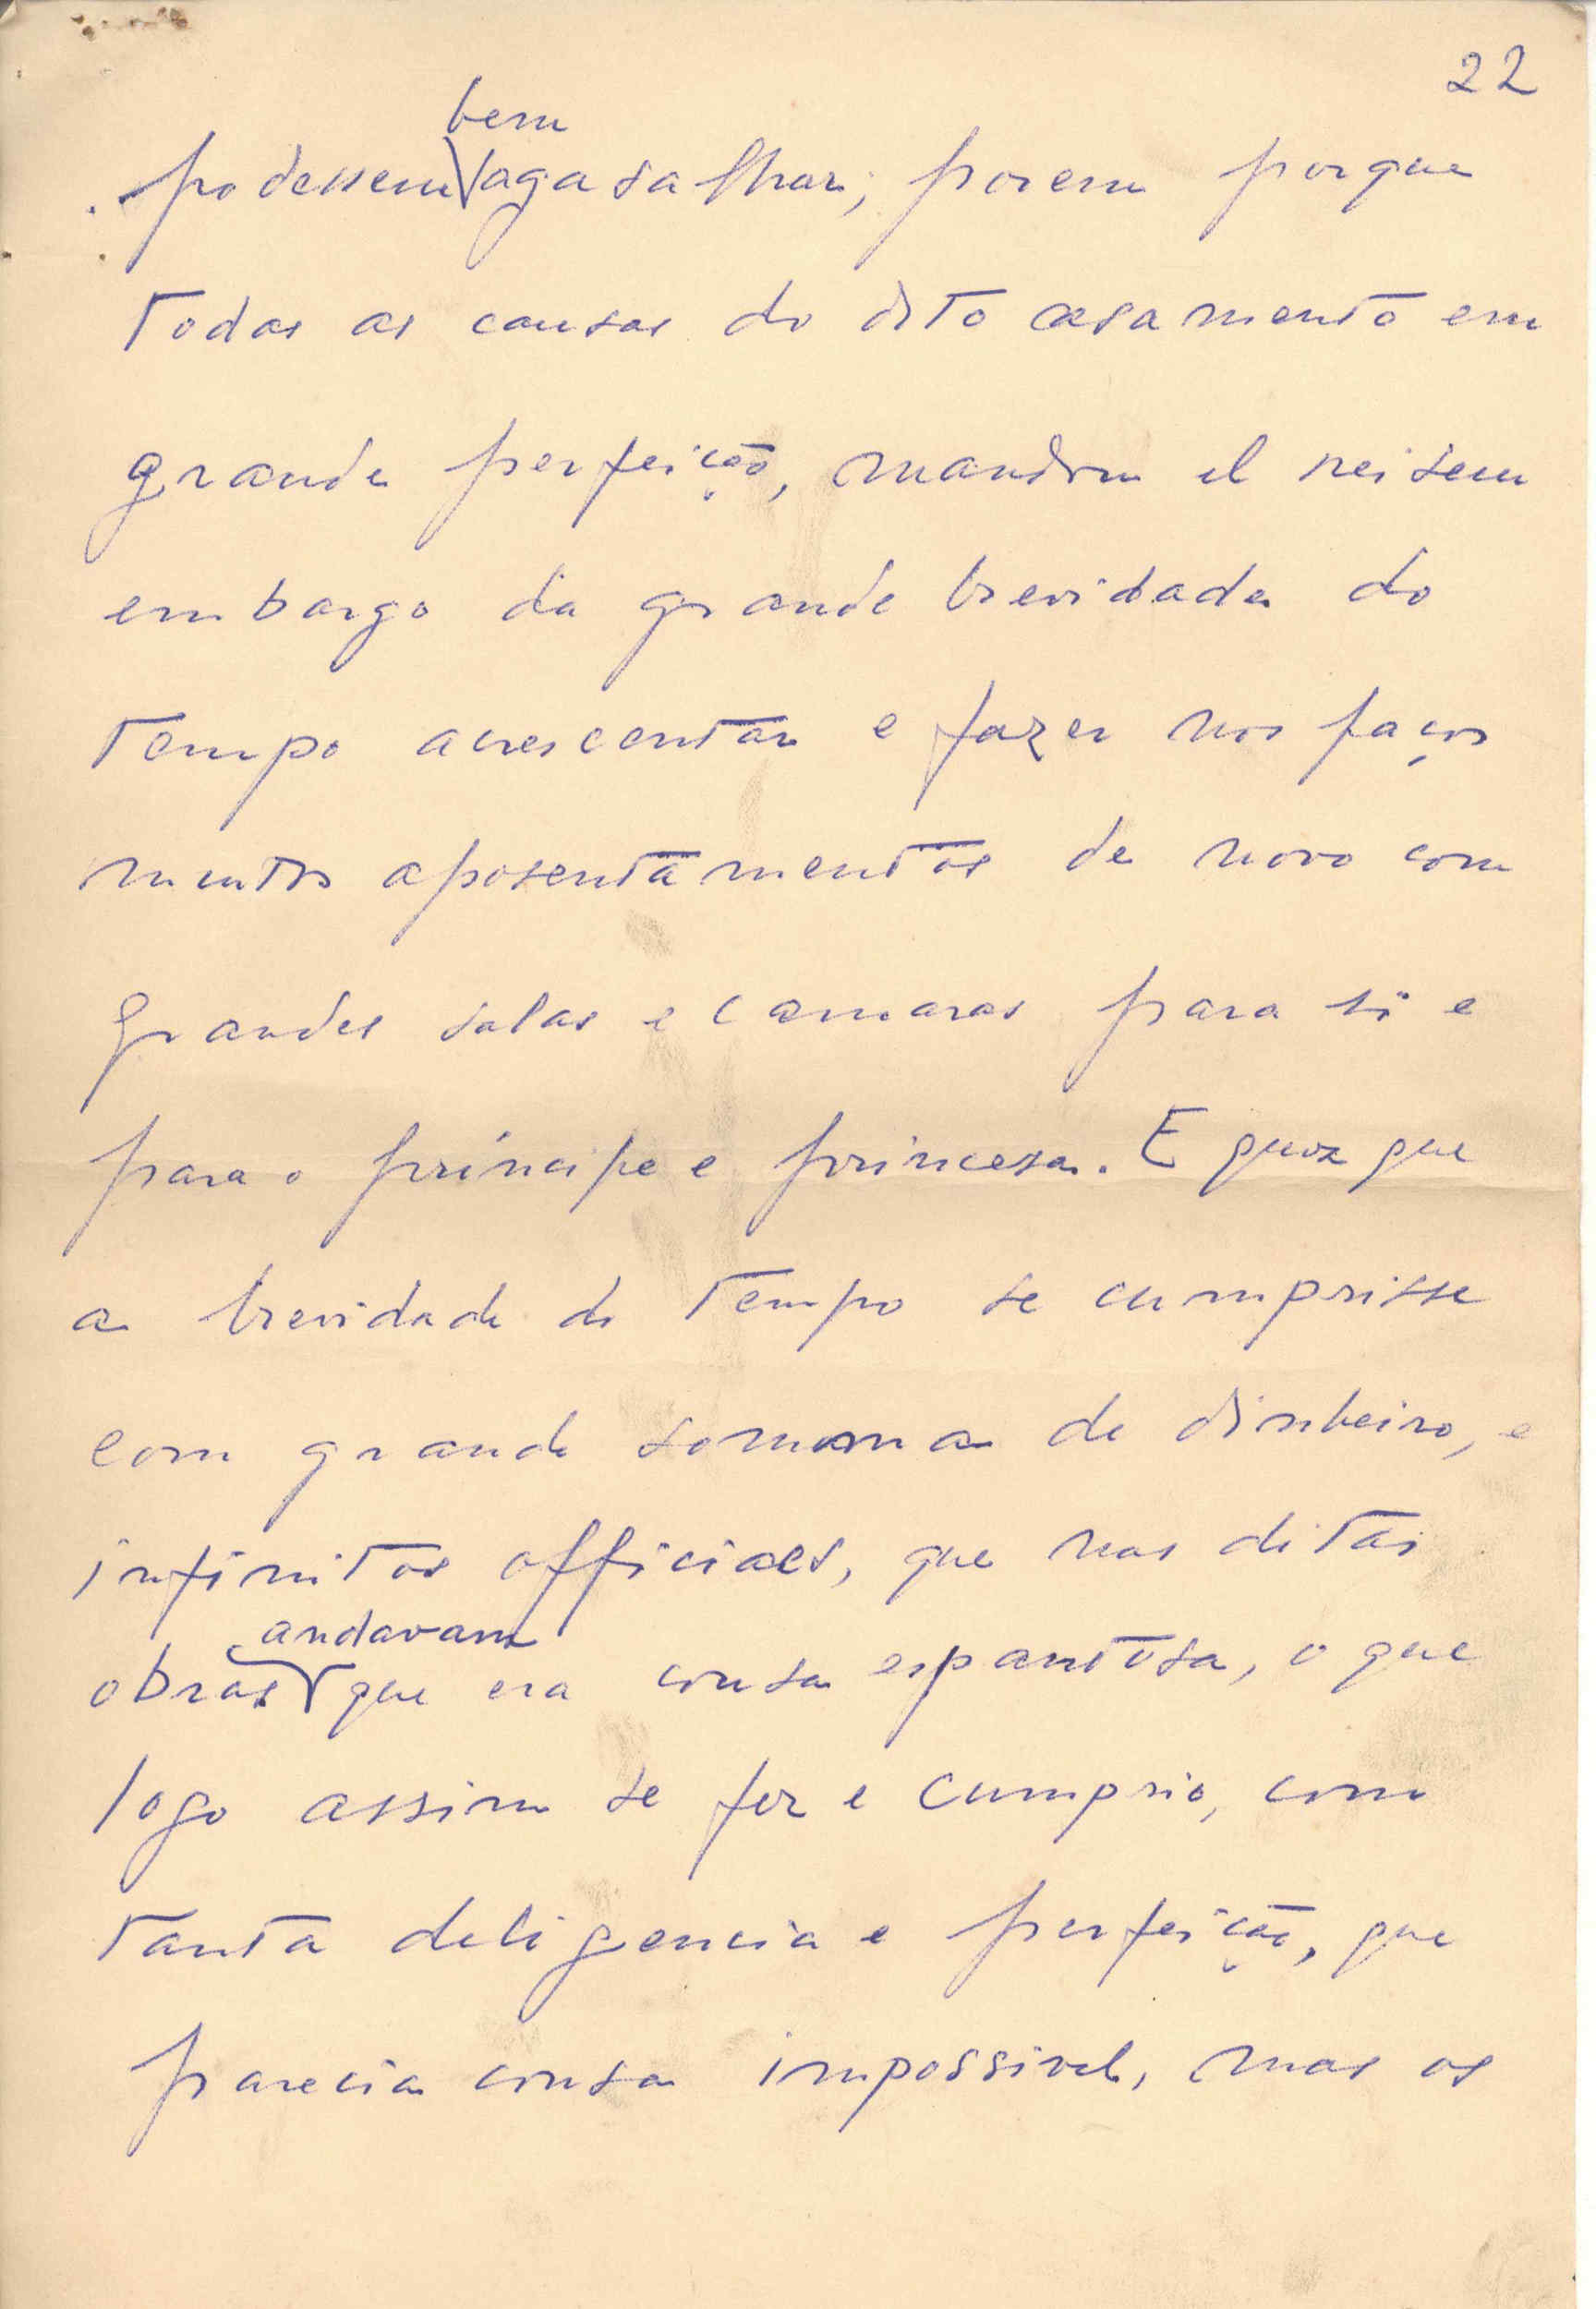 22
bem
podessem agasalhar; porem porque
todas as cousas do dito casamento em
grande perfeição, mandou el rei sem
embargo da grande brevidade do
tempo acrescentar e fazer nos paços
muitos aposentamentos de novo com
grandes salas e camaras para si e
para o príncipe e princesa. E quiz que
a brevidade do tempo se cumprisse
com grande somma de dinheiro, e
infinitos officiaes, que nas ditas
andavam
obras que era cousa espantosa, o que
logo assim se fez e cumprio, com
tanta deligencia e perfeição, que
parecia cousa impossivel, mas os